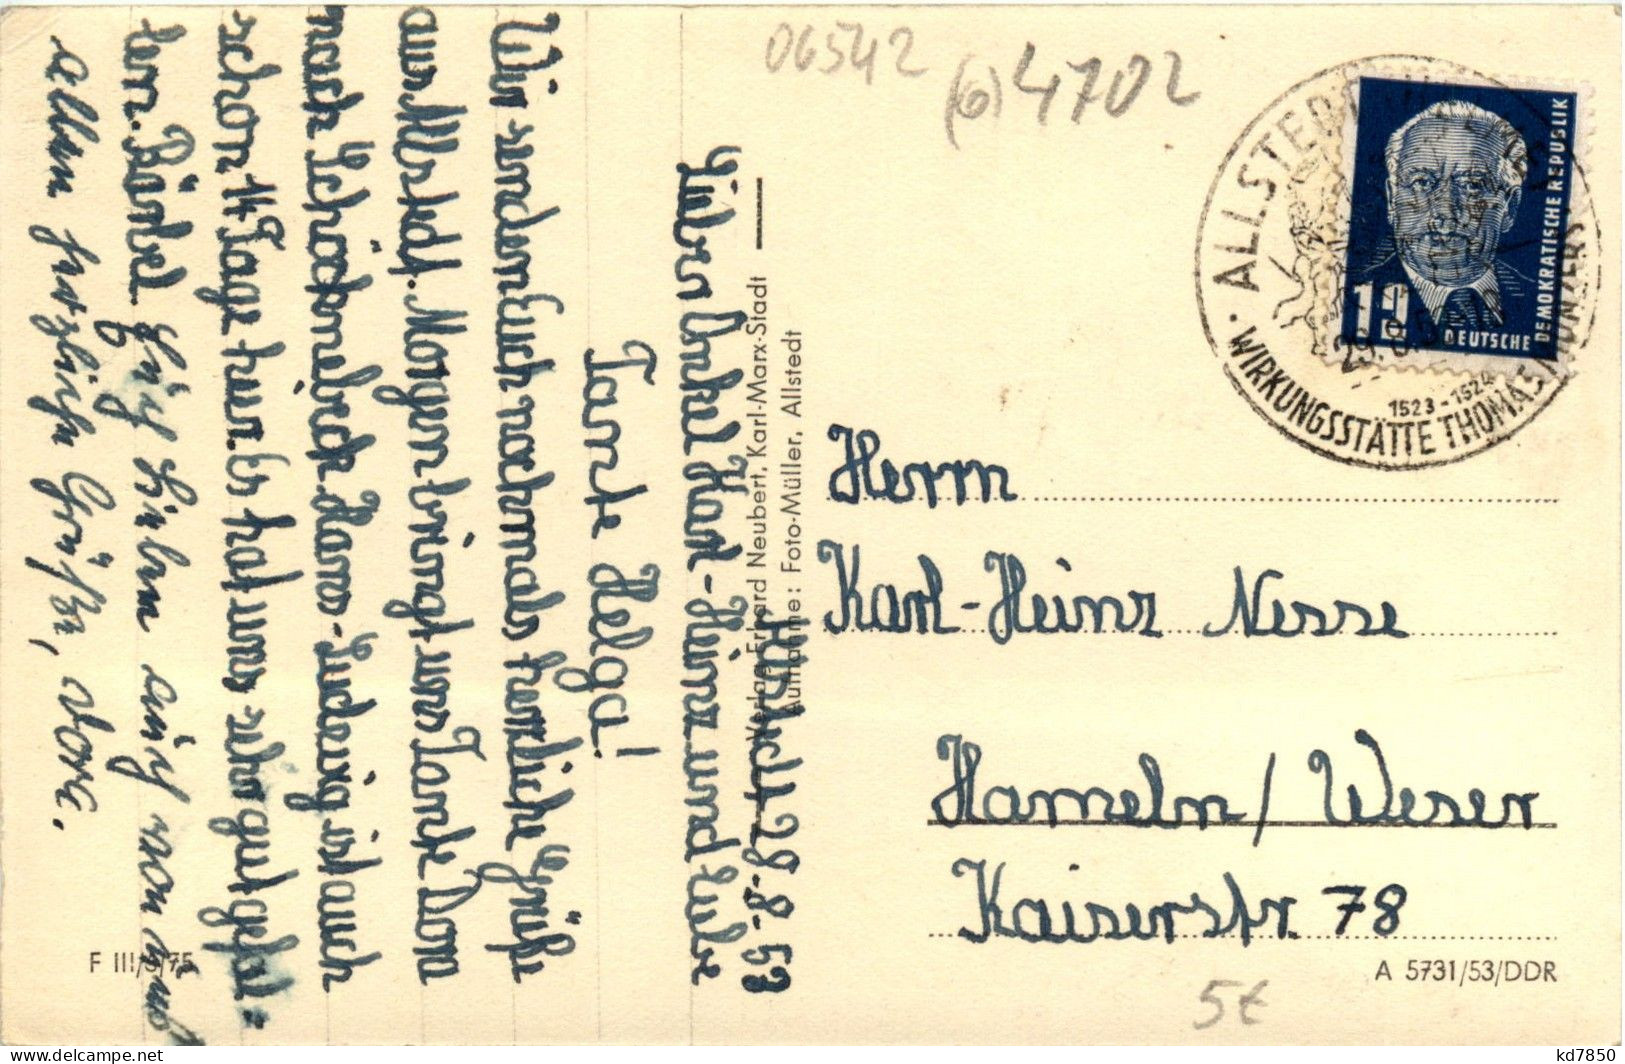 06542
(6) 4702
ALLSTEDT
WIRKUNGSSTÄTTE THOMAS MÜNTZERS
1523-1524
DEUTSCHE DEMOKRATISCHE REPUBLIK
Allstedt 29-8-53
Lieber Onkel Karl-Heinz und liebe
Tante Helga!
Wir senden Euch nochmals herzliche Grüße
aus Allstedt. Morgen bringt uns Tante Dora
nach Schickmeluck Hans-Ludwig ist auch
schon 14 Tage hier. Es hat uns sehr gut gefal-
len. Bärbel
Seid Ihr Lieben auch von uns
allen herzliche Grüße, Dora.
Verlag Erhard Neubert, Karl-Marx-Stadt
Aufnahme: Foto-Müller, Allstedt
Herrn
Karl-Heinz Nesse
Hameln / Weser
Kaiserstr. 78
F III/5/75
A 5731/53/DDR
5€
kd7850
www.delcampe.net